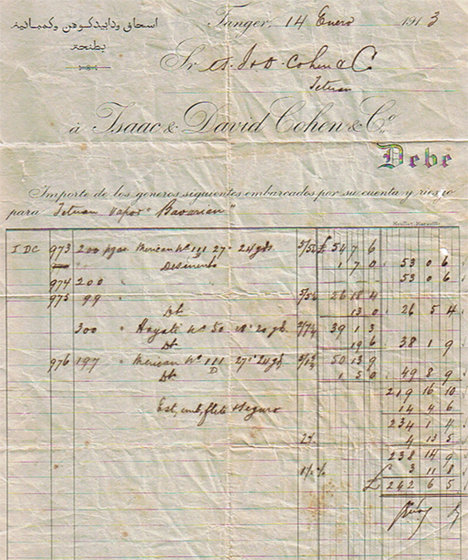 اسحاق ودابيد كوهن وكمبانية
بطنجة
Tanger, 14 Enero 1913
Sr I. & D. Cohen & C
Tetuan
á Isaac & David Cohen & Co.
Debe
Importe de los generos siguientes embarcados por su cuenta y riesgo
para Tetuan vapor "Bavarian"
I DC 973 200 pzas Mexican No 27" 24 yds £ 54 7 6
Descuento 1 7 0 53 0 6
974 200 53 0 6
975 99 26 18 4
Dt 13 0 26 5 4
300 " Hayati No 50 18" 20 yds 39 1 3
Dt 19 6 38 1 9
976 197 " Mexican No 111 27" 24 yds 50 13 9
D
Dt 1 5 0 49 8 9
219 16 10
Est, emb, flete & seguro 14 4 6
234 1 4
2% 4 13 5
238 14 9
3 11 8
£ 242 6 5